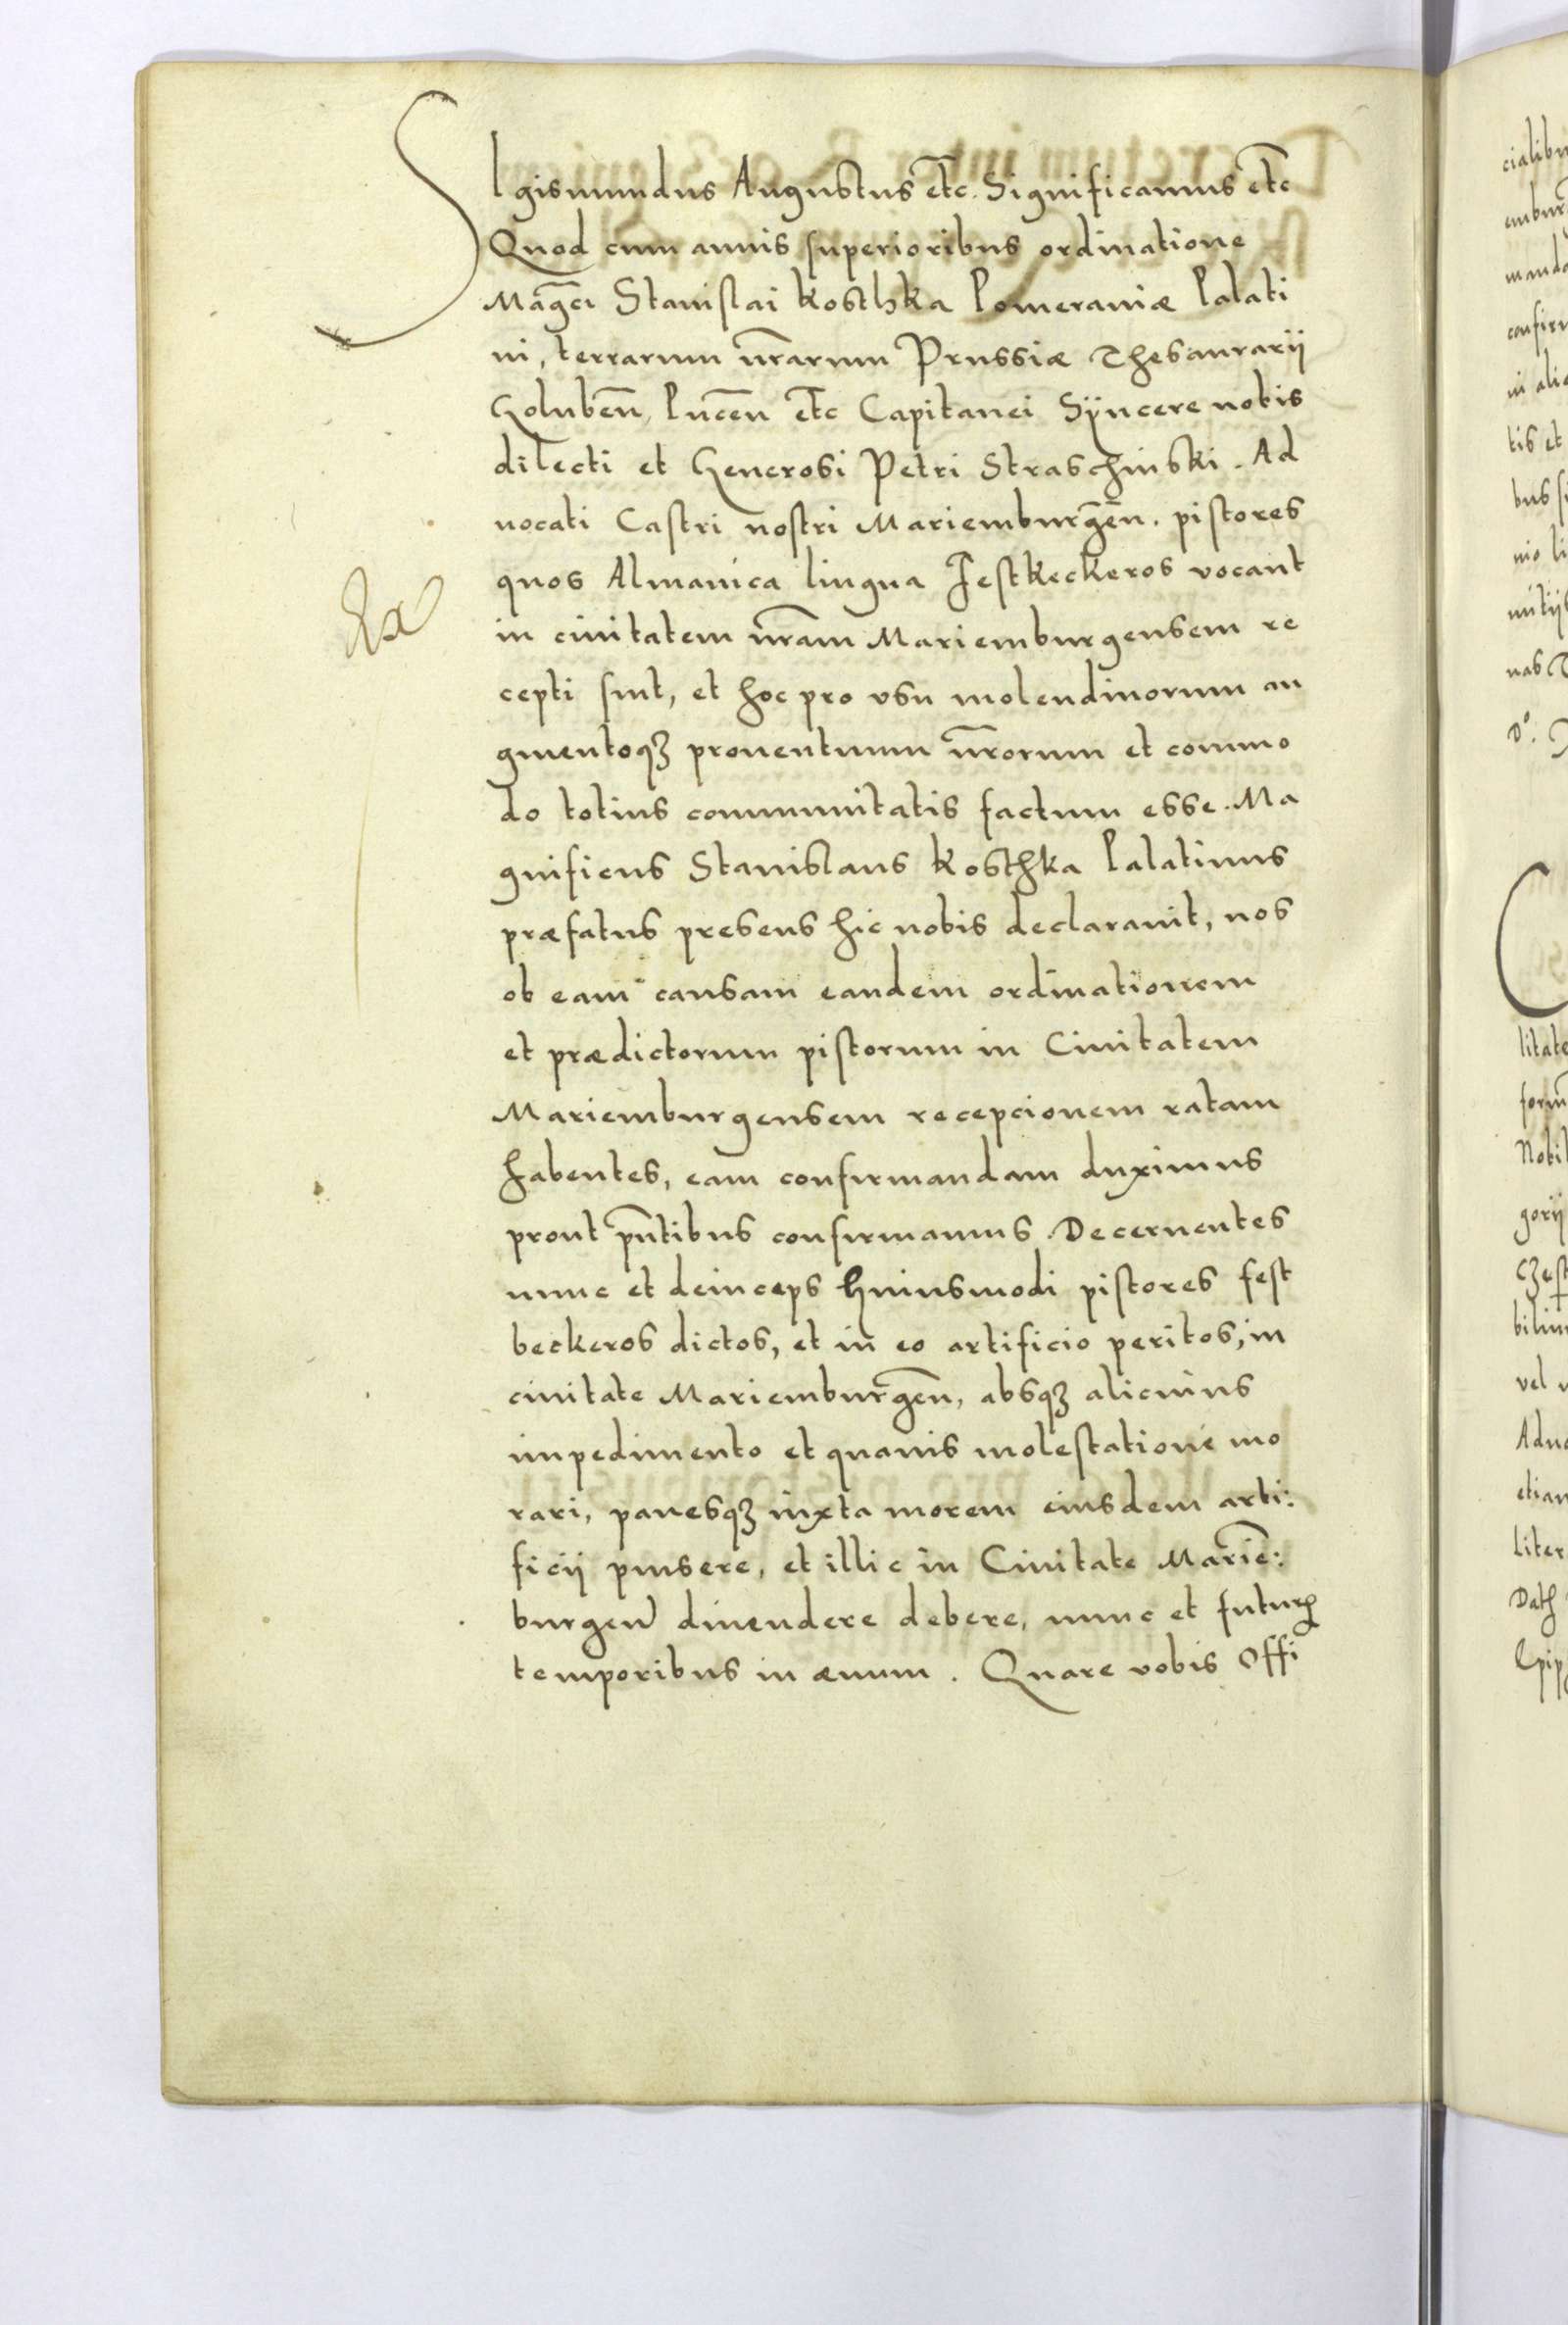 SIgismundus Augustus etc. Significamus etc
Quod cum annis superioribus ordinatione
Magci Stanislai Kosthka Pomeraniæ Palati
ni, terrarum nrarum Prussiæ Thesaurarij
Goluben, Pucen etc Capitanei Syncere nobis
dilecti et Generosi Petri Straschinski. Ad
uocati Castri nostri Mariemburgen. pistores
quos Almanica lingua Festkeckeros vocant
in ciuitatem nram Mariemburgensem re
cepti sint, et hoc pro vsu molendinorum au
gmentoqꝫ prouentuum nrorum et commo
do totius communitatis factum esse. Ma
gnificus Stanislaus Kosthka Palatinus
præfatus presens hic nobis declarauit, nos
ob eam causam eandem ordinationem
et prædictorum pistorum in Ciuitatem
Mariemburgensem recepcionem ratam
habentes, eam confirmandam duximus
prout pntibus confirmamus. Decernentes
nunc et deinceps huiusmodi pistores fest
beckeros dictos, et in eo artificio peritos, in
ciuitate Mariemburgen, absqꝫ alicuius
impedimento et quauis molestatione mo
rari, panesqꝫ iuxta morem eiusdem arti:
ficij pinsere, et illic in Ciuitate Marie:
burgen diuendere debere, nunc et futurꝭ
temporibus in æuum. Quare vobis Offi